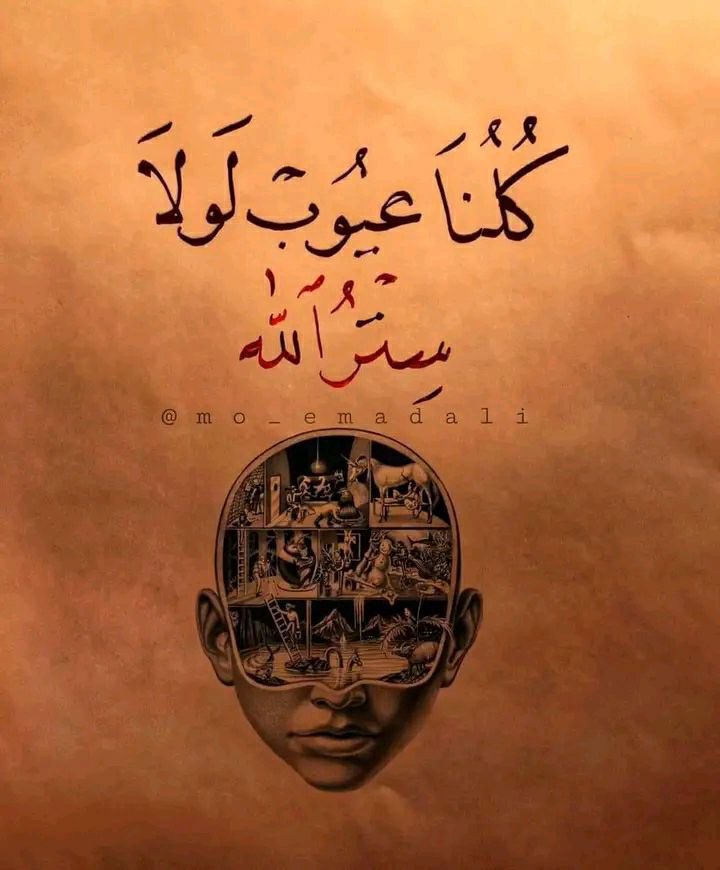 كُلُنَا عيُوب لَولاَ
سِترُ ٱللّٰه
@mo_emadali